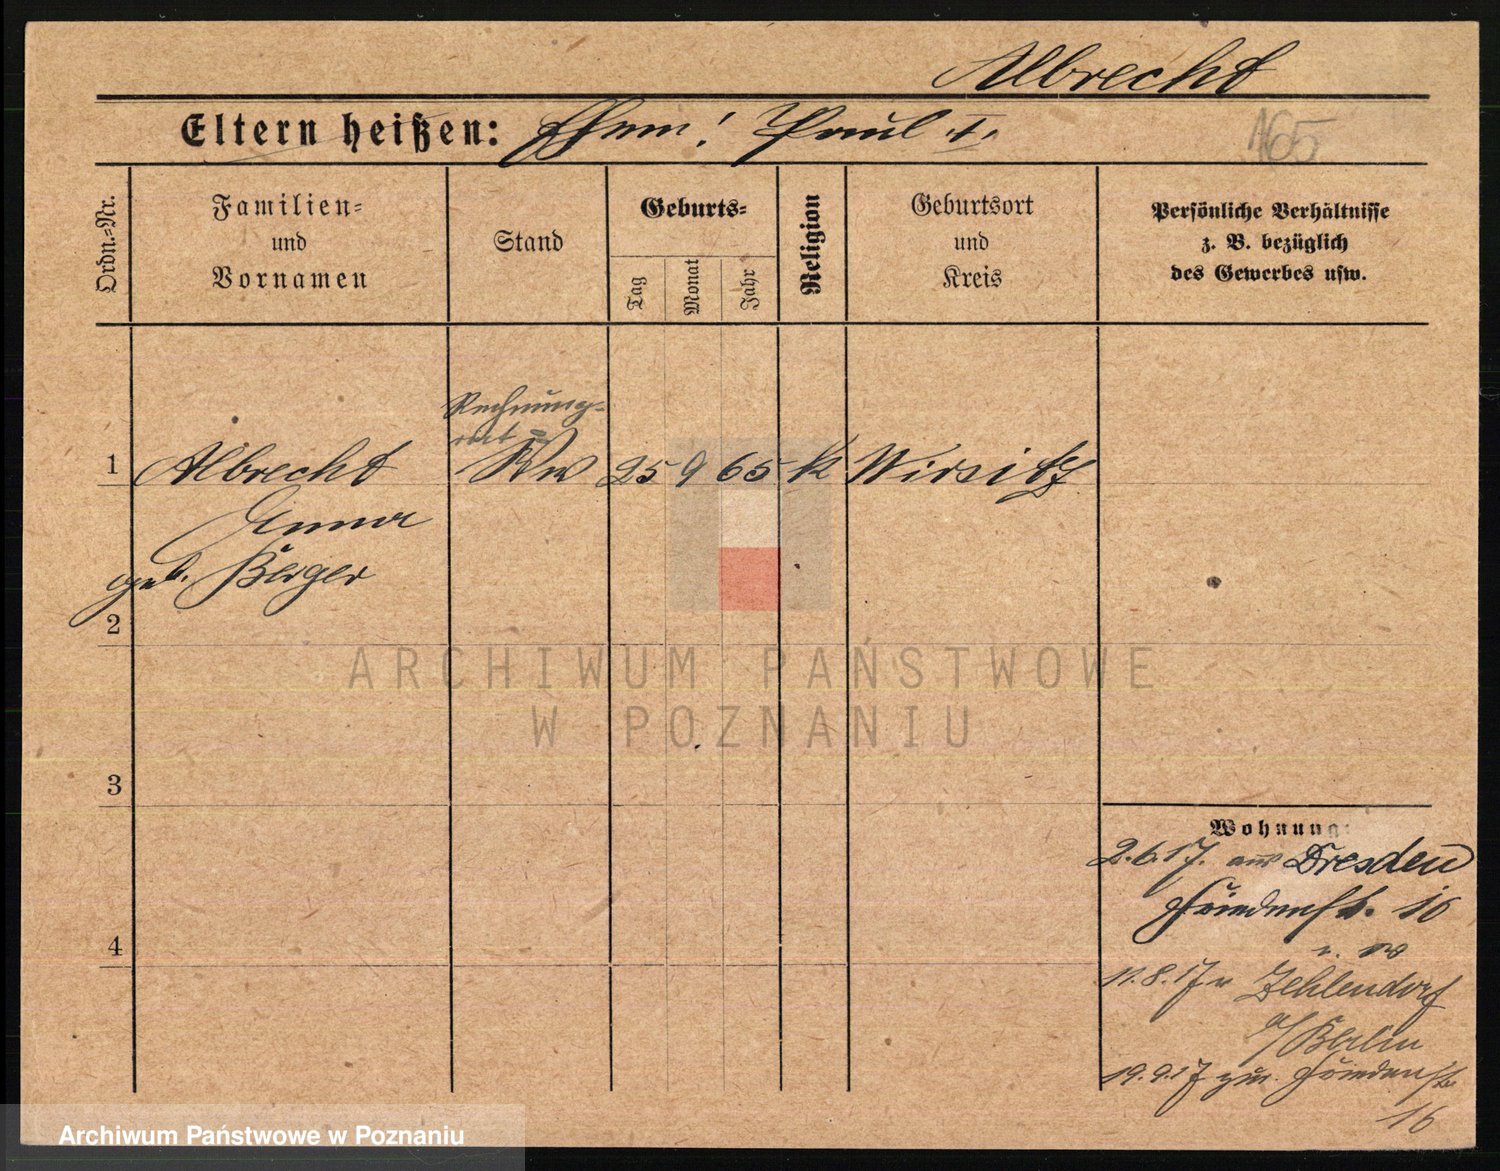 Albrecht
Eltern heißen: Ehem: Paul †.
165
Ordn.-Nr.
Familien-
und
Vornamen
Stand
Geburts-
Tag
Monat
Jahr
Religion
Geburtsort
und
Kreis
Persönliche Verhältnisse
z. B. bezüglich
des Gewerbes usw.
Rechnungs-
rat =
1 Albrecht Ww 25 9 65 k Wirsitz
Anna
geb. Berger
2
ARCHIWUM PAŃSTWOWE
W POZNANIU
3
Wohnung:
2.6.17. aus Dresden
Friedenst. 16
4
11.8.17 n Zehlendorf
a/Berlin
19.9.17 zur. Friedenst.
16
Archiwum Państwowe w Poznaniu